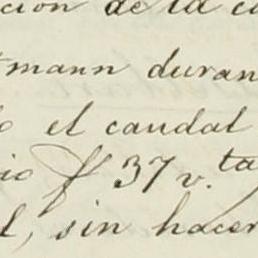 cion de la cu
tmann duran
o el caudal
io f 37 v.ta
l, sin hacer